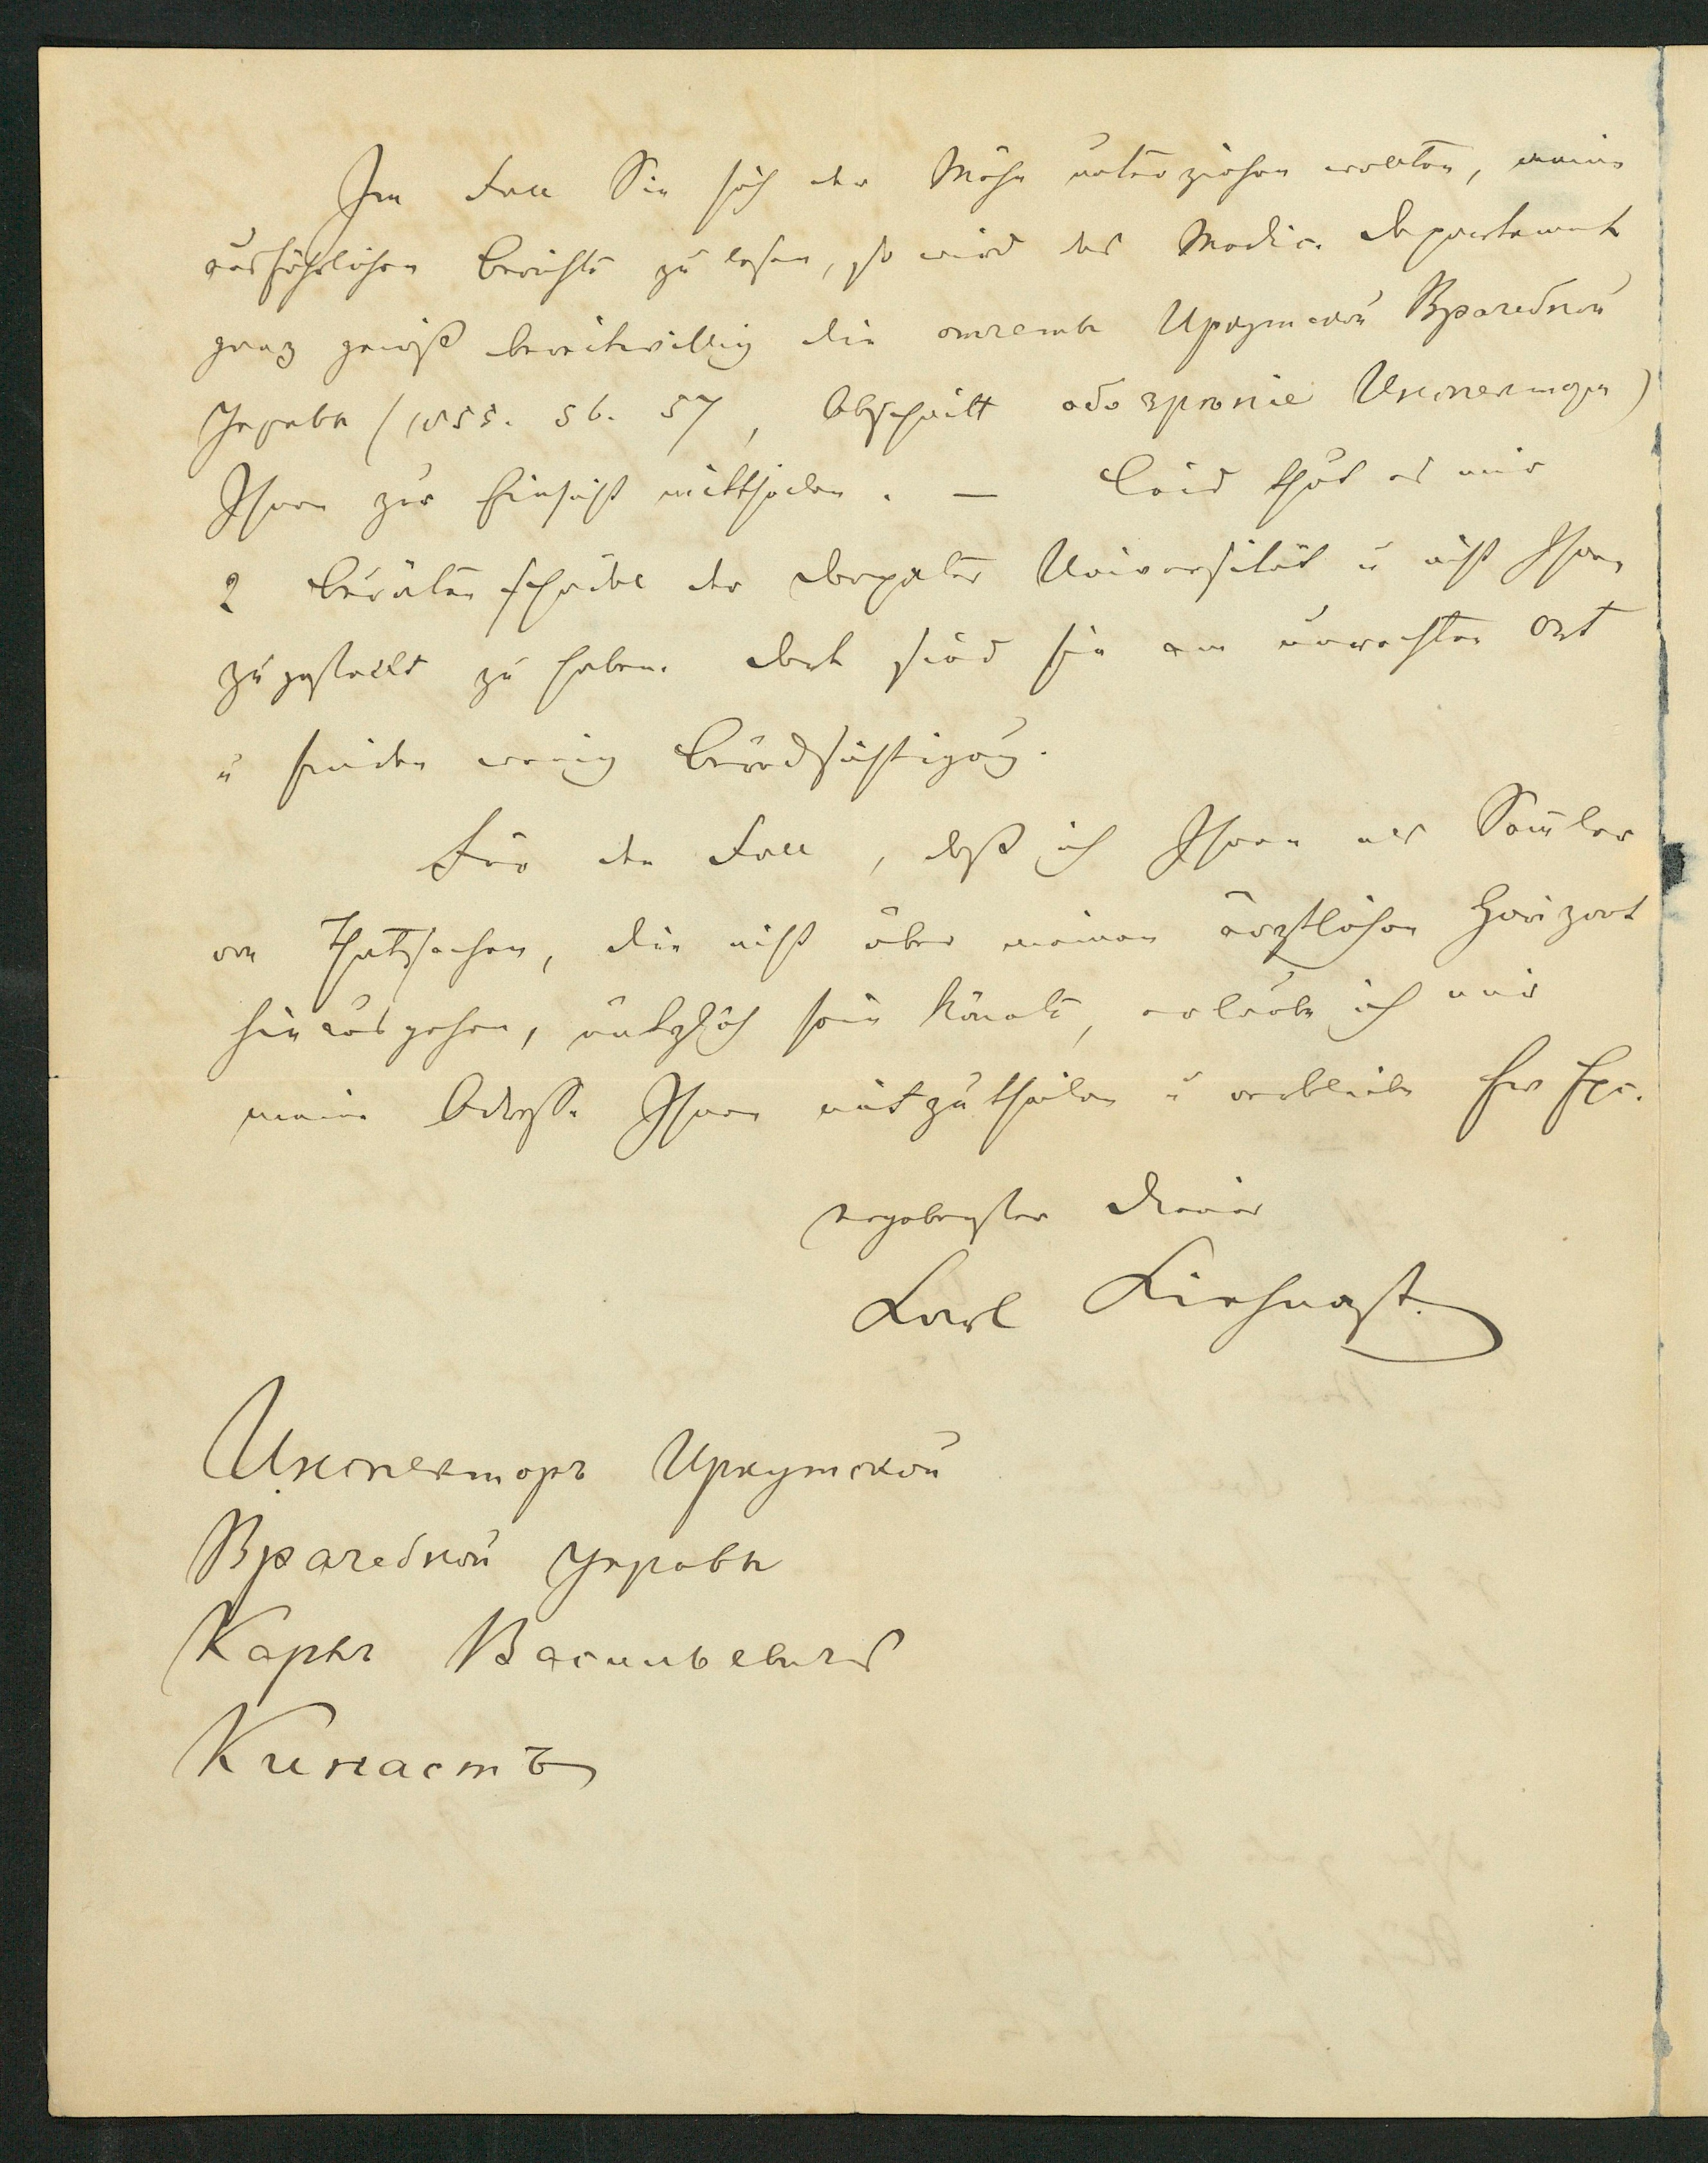 Im Fall Sie sich der Mühe unterziehen wollten, meine
ausführlichen Berichte zu lesen, so wird das Medic. Departement
ganz gewiß bereitwillig die отчеты Иркутской Врачебной
Управы (1855. 56. 57, Abschnitt обозрѣніе Инспектора)
Ihnen zur Einsicht mittheilen. — Leid thut es mir
2 Buräten Schädel der Dorpater Universität u nicht Ihnen
zugestellt zu haben. Dort sind sie am unrechten Ort
u finden wenig Berücksichtigung.
Für den Fall, daß ich Ihnen als Samler
von Thatsachen, die nicht über meinen ärztlichen Horizont
hinausgehen, nützlich sein könnte, erlaube ich mir
meine Adresse Ihnen mitzutheilen u verbleibe Ew Exc.
ergebenster Diener
Karl Kiehnast
Инспекторъ Иркутской
Врачебной Управы
Карлъ Васильевичъ
Кинастъ